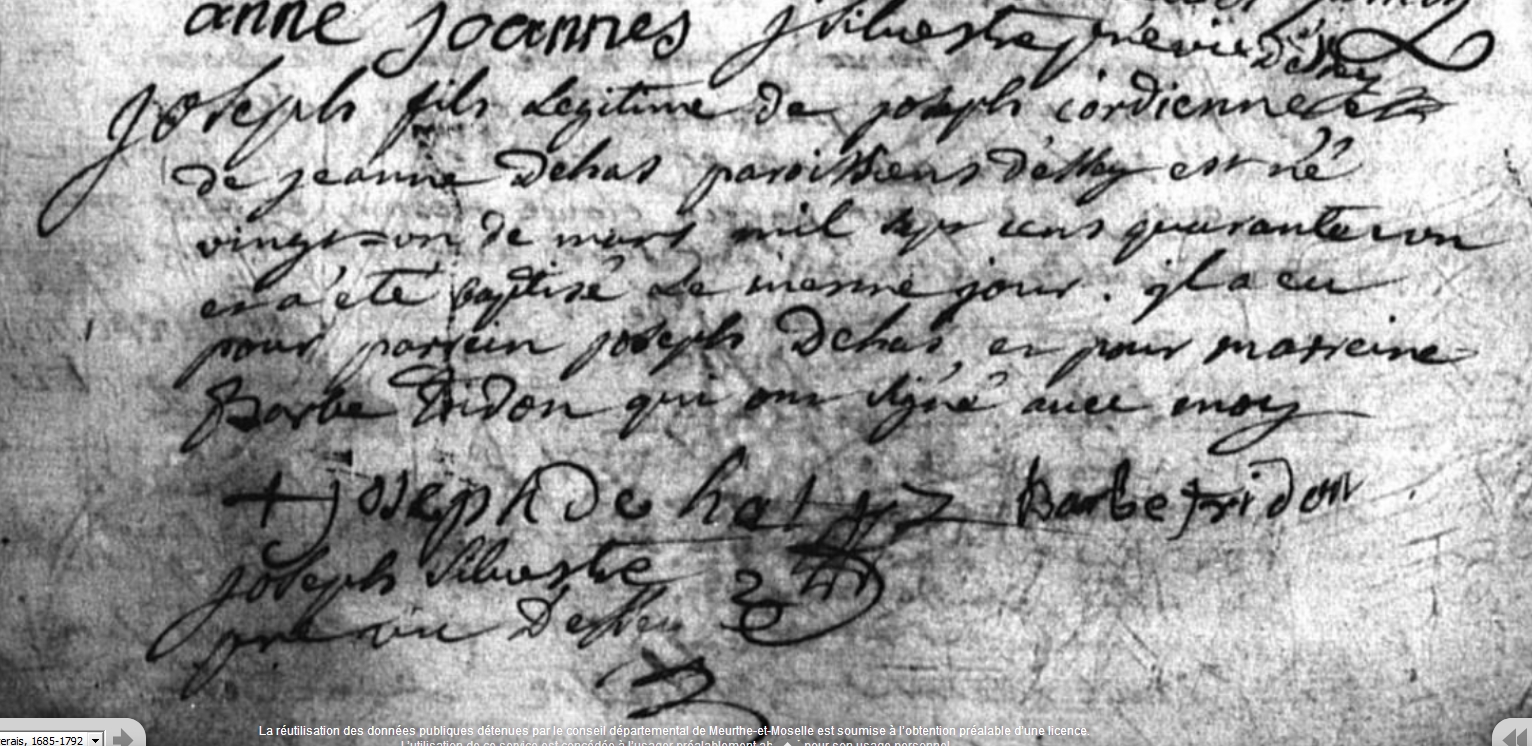 anne joannes j Silvestre prêvic
Joseph fils Legitime de joseph cordienne et
de jeanne Dehas paroissiens est né
vingt=un de mars mil sept cens quarante un
et a été baptisé Le mesme jour. jl a eu
pour parrein joseph Dehas, et pour marreine
Barbe Fridon qui ont signé avec moy
+ joseph De hat Barbe fridon
joseph Silvestre
pre vic
erais, 1685-1792
La réutilisation des données publiques détenues par le conseil départemental de Meurthe-et-Moselle est soumise à l'obtention préalable d'une licence.
L'utilisation de ce service est concédée à l'usager préalablement pour son usage personnel